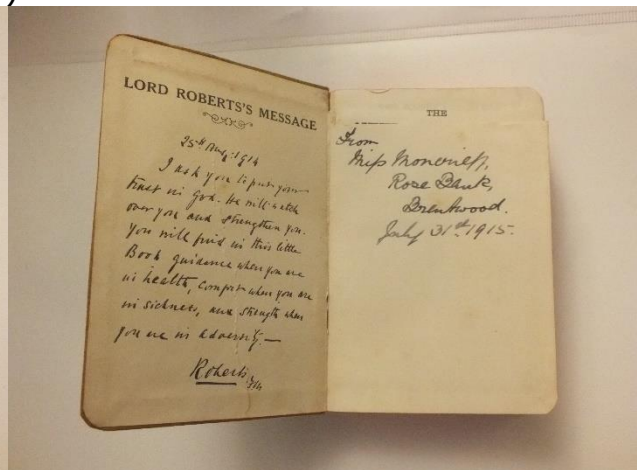 LORD ROBERTS'S MESSAGE
25th Aug. 1914
I ask you to put your
trust in God. He will watch
over you and strengthen you.
You will find in this little
Book guidance when you are
in health, comfort when you are
in sickness, and strength when
you are in adversity.—
Roberts
THE
From
Miss Moncrieff,
Rose Bank,
Brentwood.
July 31st 1915.